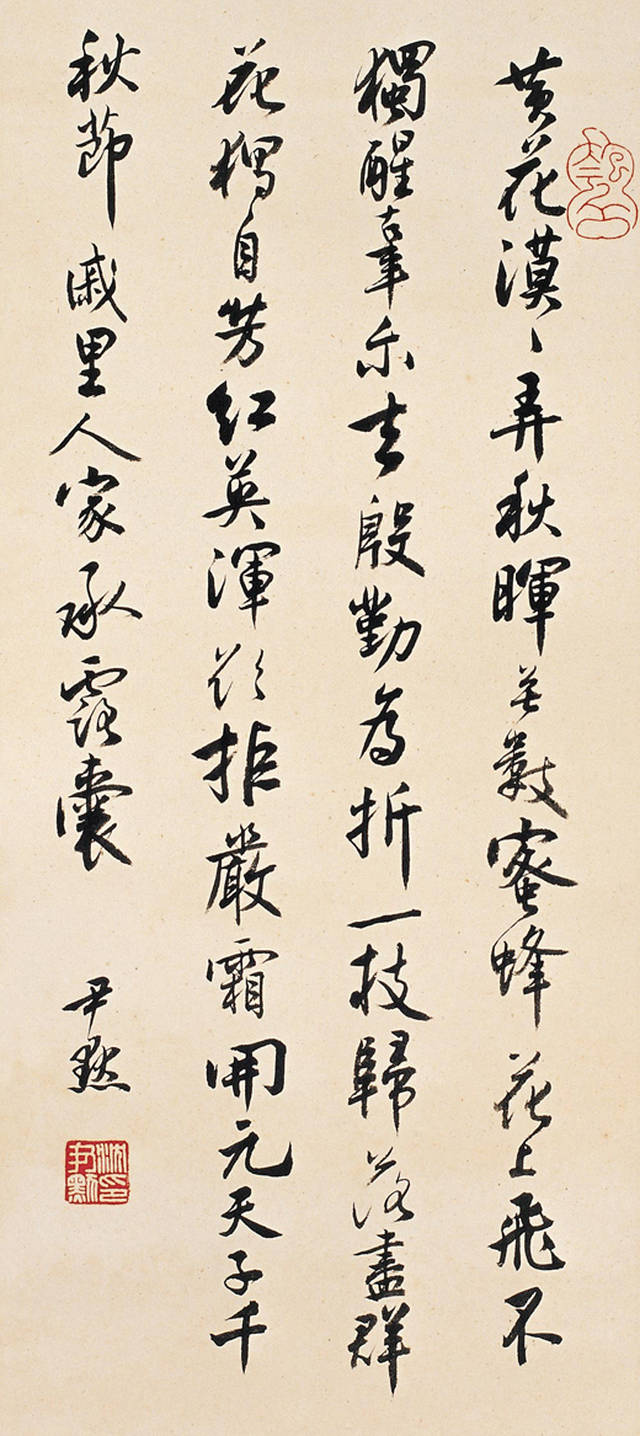 黄花漠〻弄秋暉無數蜜蜂花上飛不
獨醒辜尔去殷勤为折一枝歸落盡群
花獨自芳红英渾欲拒嚴霜開元天子千
秋節戚里人家承露囊
尹默
沈尹默印